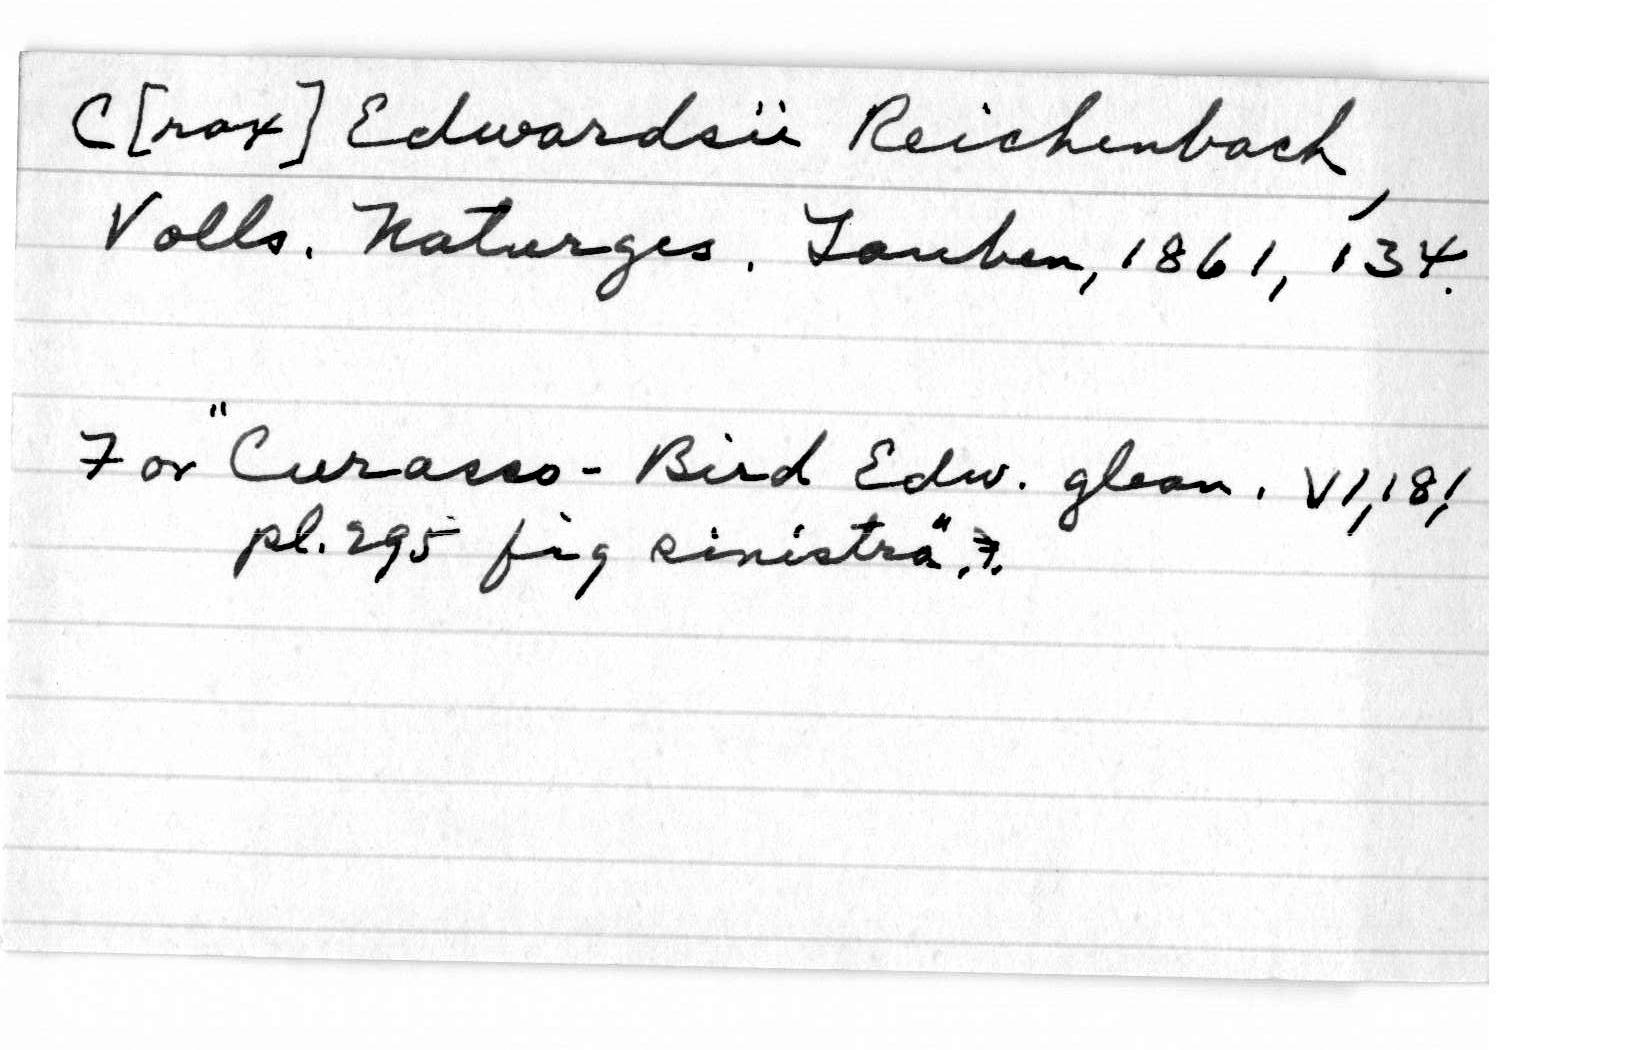 C[rax] Edwardsii Reichenbach,
Volls. Naturges. Tauben, 1861, 134.
For "Curasso-Bird Edw. glean. VI, 181,
pl. 295 fig sinistra".